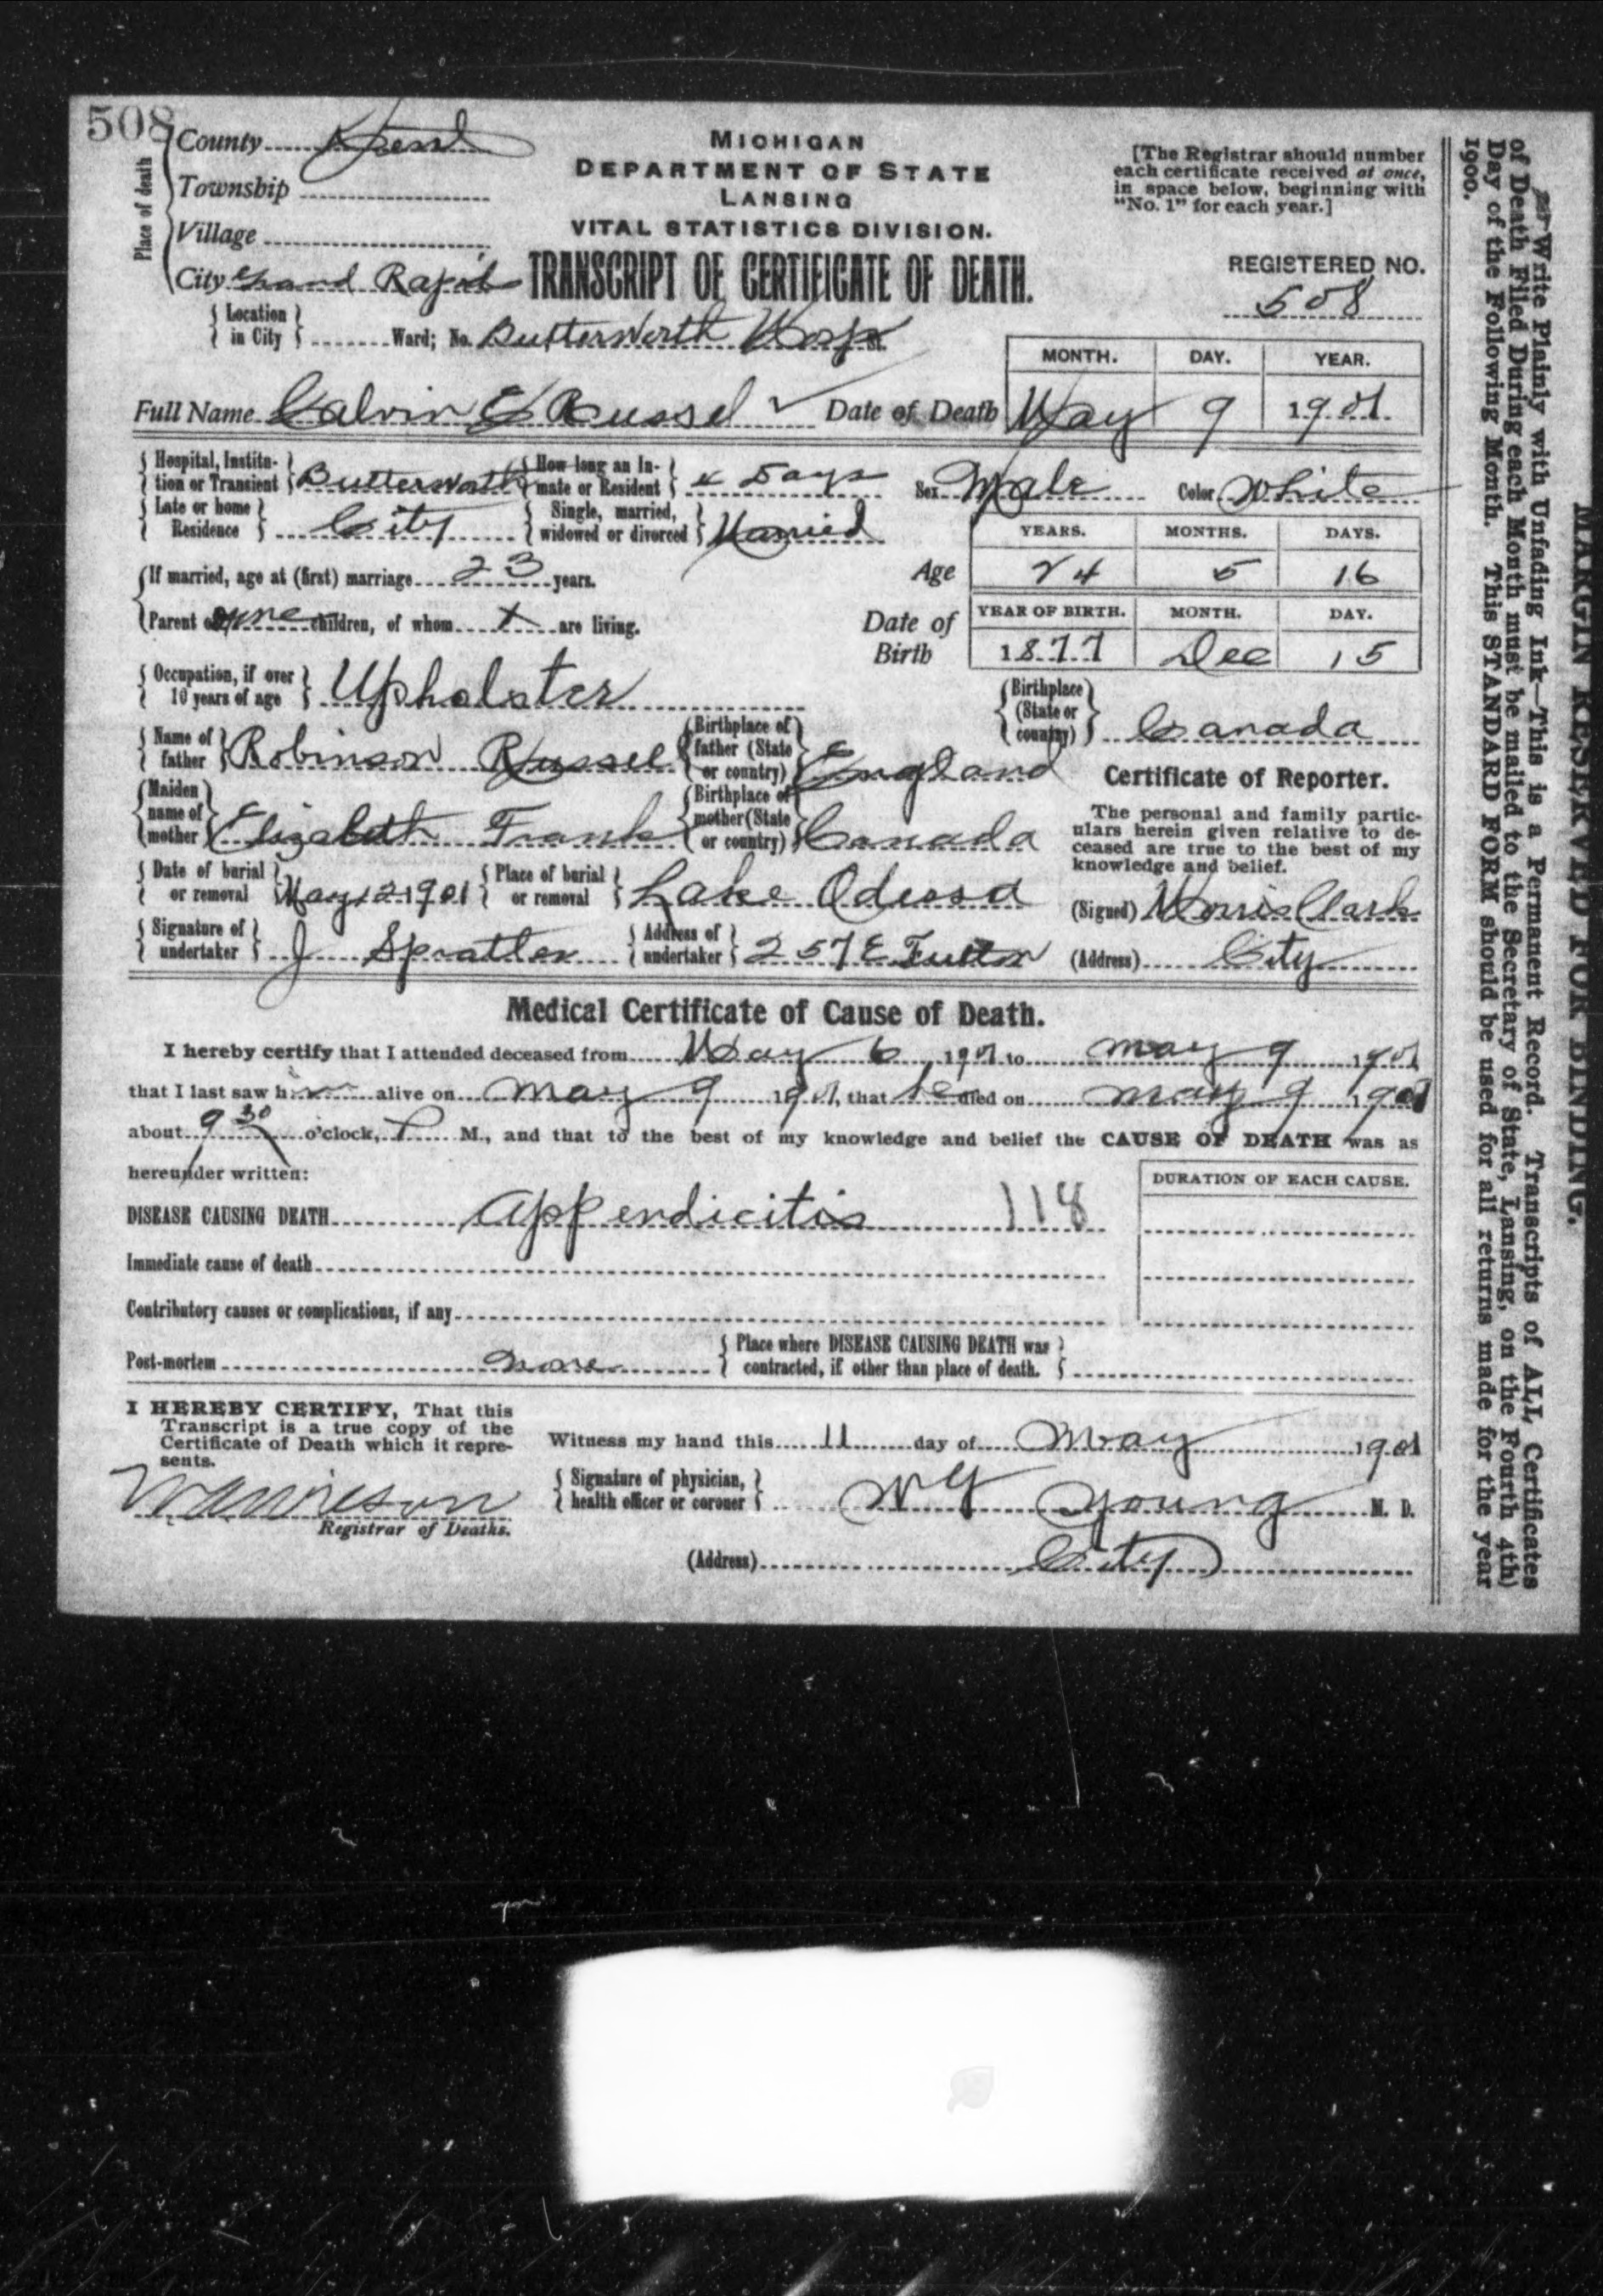 508
County Kent
Township
Village
City Grand Rapids
Place of death
MICHIGAN
DEPARTMENT OF STATE
LANSING
VITAL STATISTICS DIVISION.
TRANSCRIPT OF CERTIFICATE OF DEATH.
[The Registrar should number
each certificate received at once,
in space below, beginning with
"No. 1" for each year.]
REGISTERED NO.
508
Location in City Ward; No. Butterworth Hosp St.
MONTH. DAY. YEAR.
Full Name Calvin E Russel Date of Death May 9 1901
Hospital, Institution or Transient Butterworth How long an Inmate or Resident Days Sex Male Color White
Late or home Residence City Single, married, widowed or divorced Married
YEARS. MONTHS. DAYS.
If married, age at (first) marriage 23 years. Age 24 5 16
YEAR OF BIRTH. MONTH. DAY.
Parent of children, of whom are living. Date of Birth 1877 Dec 15
Occupation, if over 10 years of age Upholster Birthplace (State or country) Canada
Name of father Robinson Russel Birthplace of father (State or country) England
Maiden name of mother Elizabeth Frank Birthplace of mother (State or country) Canada
Certificate of Reporter.
The personal and family partic-
ulars herein given relative to de-
ceased are true to the best of my
knowledge and belief.
Date of burial or removal May 12 1901 Place of burial or removal Lake Odessa (Signed) Morris Clark
Signature of undertaker J Spratler Address of undertaker 257 E Fulton (Address) City
Medical Certificate of Cause of Death.
I hereby certify that I attended deceased from May 6 1901 to may 9 1901
that I last saw him alive on may 9 1901, that he died on may 9 1901
about 9 30 o'clock, P M., and that to the best of my knowledge and belief the CAUSE OF DEATH was as
hereunder written:
DURATION OF EACH CAUSE.
DISEASE CAUSING DEATH appendicitis 118
Immediate cause of death
Contributory causes or complications, if any
Post-mortem none Place where DISEASE CAUSING DEATH was contracted, if other than place of death.
I HEREBY CERTIFY, That this
Transcript is a true copy of the
Certificate of Death which it repre-
sents.
Registrar of Deaths.
Witness my hand this 11 day of May 1901
Signature of physician, health officer or coroner W Y Young M. D.
(Address) City
Write Plainly with Unfading Ink—This is a Permanent Record. Transcripts of ALL Certificates
of Death Filed During each Month must be mailed to the Secretary of State, Lansing, on the Fourth 4th)
Day of the Following Month. This STANDARD FORM should be used for all returns made for the year
1900.
MARGIN RESERVED FOR BINDING.